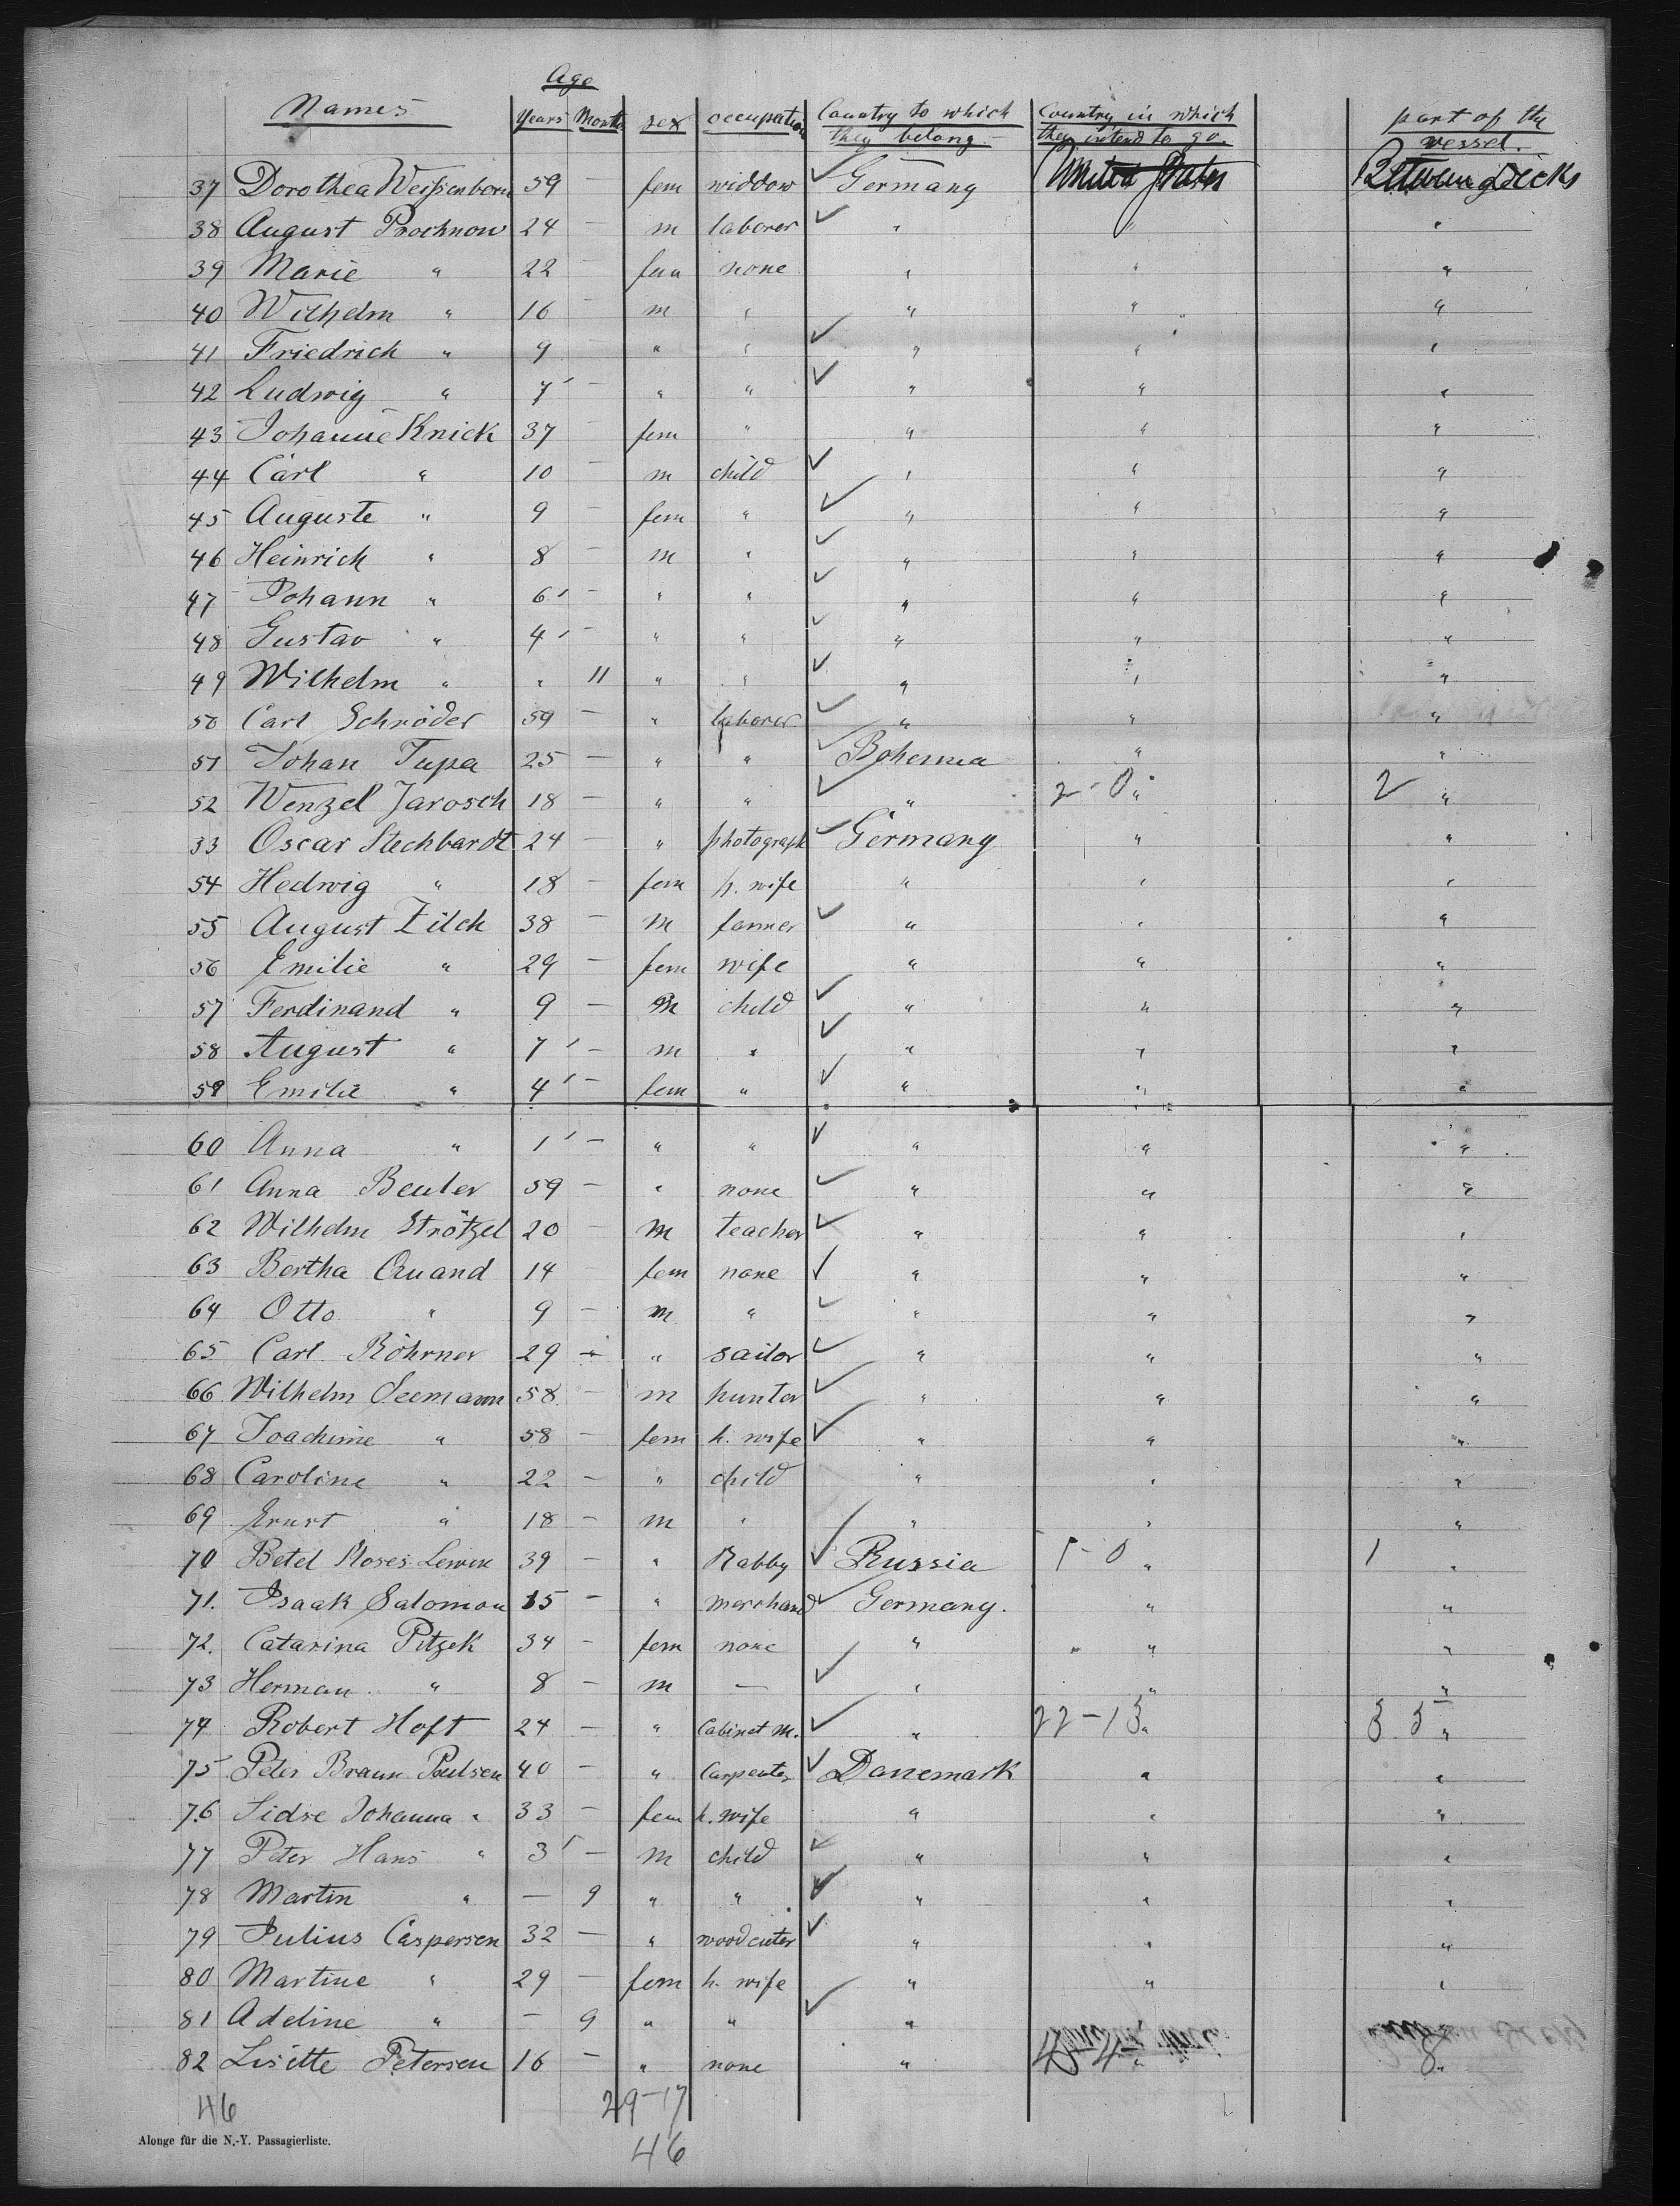 Age
Names Years Months sex occupation Country to which they belong Country in which they intend to go. part of the vessel.
37 Dorothea Weißenborn 59 — fem widdow Germany United States Betweengdecks
38 August Prochnow 24 — m laborer " " "
39 Marie " 22 — fem none " " "
40 Wilhelm " 16 — m " " " "
41 Friedrich " 9 " " " " "
42 Ludwig " 7 — " " " " "
43 Johanne Knick 37 — fem " " " "
44 Carl " 10 — m child " " "
45 Auguste " 9 — fem " " " "
46 Heinrich " 8 — m " " " "
47 Johann " 6 — " " " " "
48 Gustav " 4 — " " " " "
49 Wilhelm " " 11 " " " " "
50 Carl Schröder 59 — " laborer " " "
51 Johan Tupa 25 — " " Bohemia " "
52 Wenzel Jarosch 18 — " " " 2-0 " 2 "
33 Oscar Stechbardt 24 — " photograph Germany " "
54 Hedwig " 18 — fem h. wife " " "
55 August Zilch 38 — m farmer " " "
56 Emilie " 29 — fem wife " " "
57 Ferdinand " 9 — m child " " "
58 August " 7 — m " " " "
59 Emilie " 4 — fem " " " "
60 Anna " 1 — " " " " "
61 Anna Beuler 59 — " none " " "
62 Wilhelm Strötzel 20 — m teacher " " "
63 Bertha Quand 14 — fem none " " "
64 Otto " 9 — m " " " "
65 Carl Röhrner 29 — " sailor " " "
66 Wilhelm Seemann 58 — m hunter " " "
67 Joachime " 58 — fem h. wife " " "
68 Caroline " 22 — " child " " "
69 Ernst " 18 — m " " " "
70 Betel Moses Lewin 39 — " Rabby Russia 1-0 " 1 "
71. Isaak Salomon 15 — " merchand Germany. " "
72. Catarina Pitzek 34 — fem none " " "
73 Herman " 8 — m — " " "
74 Robert Hoft 24 — " Cabinet m. " 22-13 " 35 "
75 Peter Braun Poulsen 40 — " Carpenter Danemark " "
76 Sidse Johanna " 33 — fem h. wife " " "
77 Peter Hans " 3 — m child " " "
78 Martin " — 9 " " " " "
79 Julius Caspersen 32 — " woodcuter " " "
80 Martine " 29 — fem h. wife " " "
81 Adeline " — 9 " " "
82 Lisette Petersen 16 — " none " 4-4 " 8 "
46 29-17
46
Alonge für die N.-Y. Passagierliste.